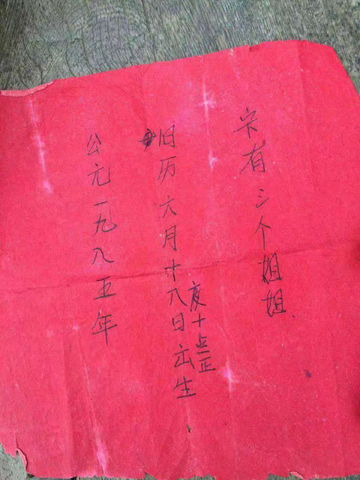 公元一九八五年
旧历六月十八日出生
夜十点正
家有三个姐姐